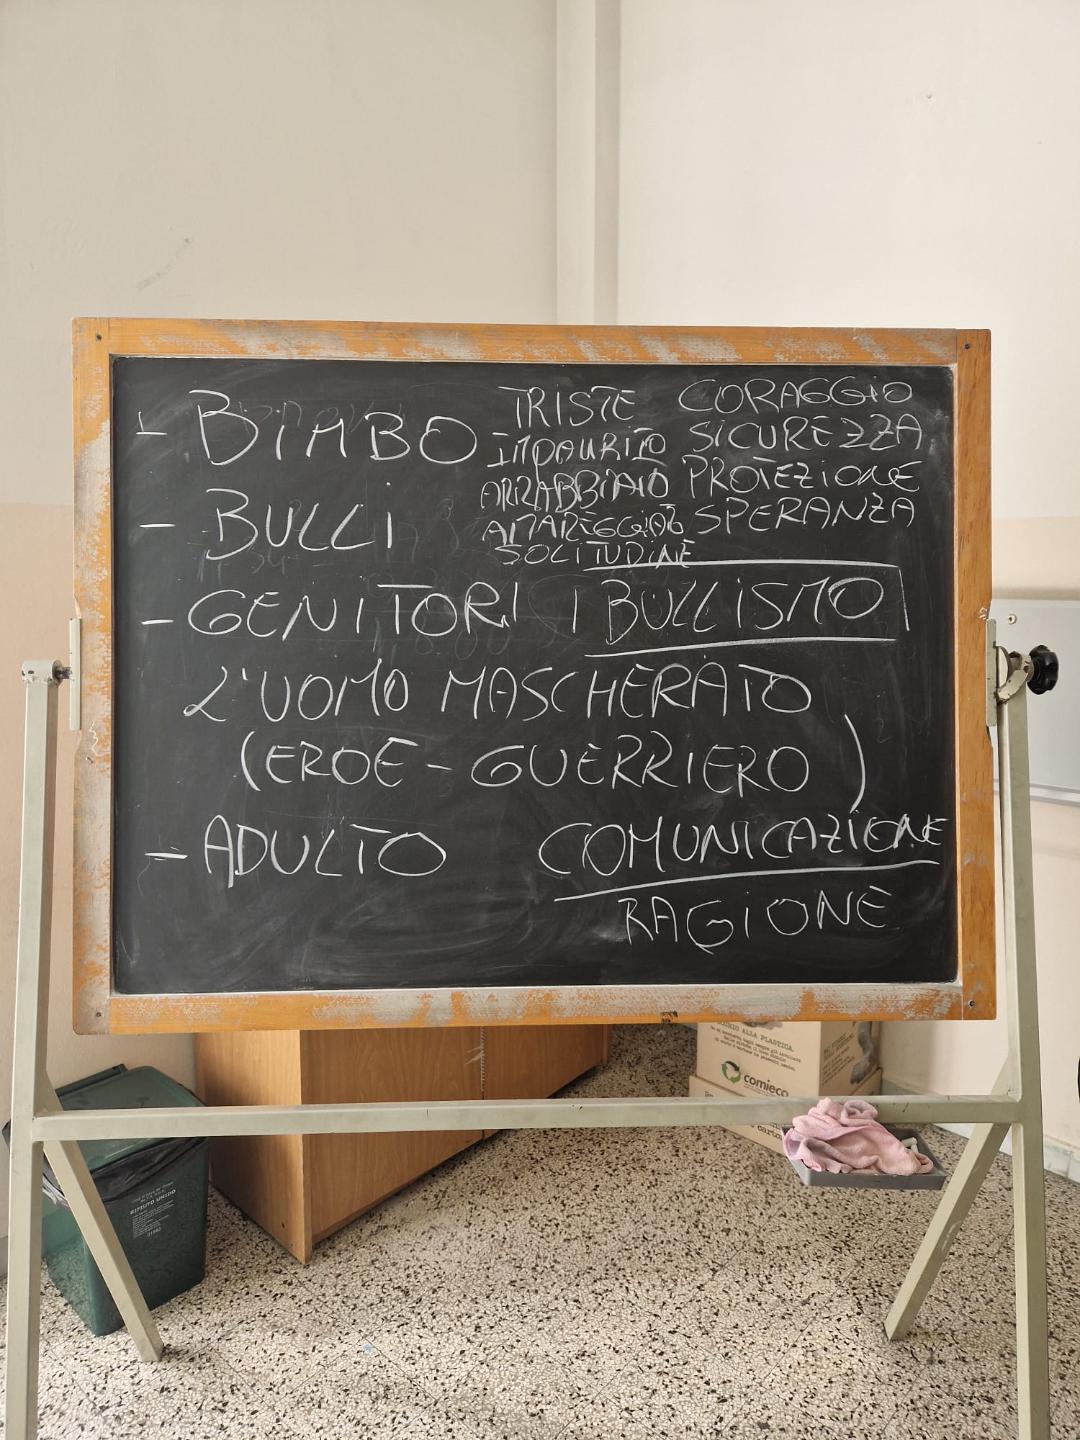 - BIMBO
TRISTE CORAGGIO
IMPAURITO SICUREZZA
ARRABBIATO PROTEZIONE
AMAREGGIATO SPERANZA
SOLITUDINE
- BULLI
- GENITORI BULLISMO
L'UOMO MASCHERATO
(EROE - GUERRIERO)
- ADULTO COMUNICAZIONE
RAGIONE
ALLA PLASTICA.
comieco
RIFIUTO UMIDO